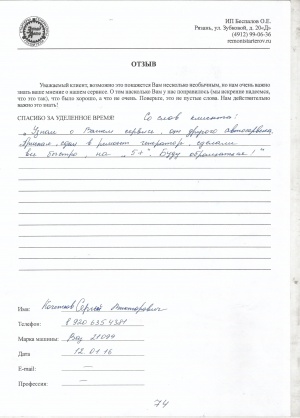 ИП Беспалов О.Е.
Рязань, ул. Зубковой, д. 20«Д»
(4912) 99-06-36
remontstarterov.ru
ОТЗЫВ
Уважаемый клиент, возможно это покажется Вам несколько необычным, но нам очень важно
знать ваше мнение о нашем сервисе. О том насколько Вам у нас понравилось (мы искренне надеемся,
что это так), что было хорошо, а что не очень. Поверьте, это не пустые слова. Нам действительно
важно это знать!
СПАСИБО ЗА УДЕЛЕННОЕ ВРЕМЯ! Со слов клиента!
„Узнал о Вашем сервисе, от другого автосервиса.
Приехал, сдал в ремонт генератор, сделали
все быстро, на „5+". Буду обращаться!"
Имя: Сергей Викторович
Телефон: 8 920 635 4381
Марка машины: Ваз 21099
Дата 12 01 16
E-mail: —
Профессия: —
74